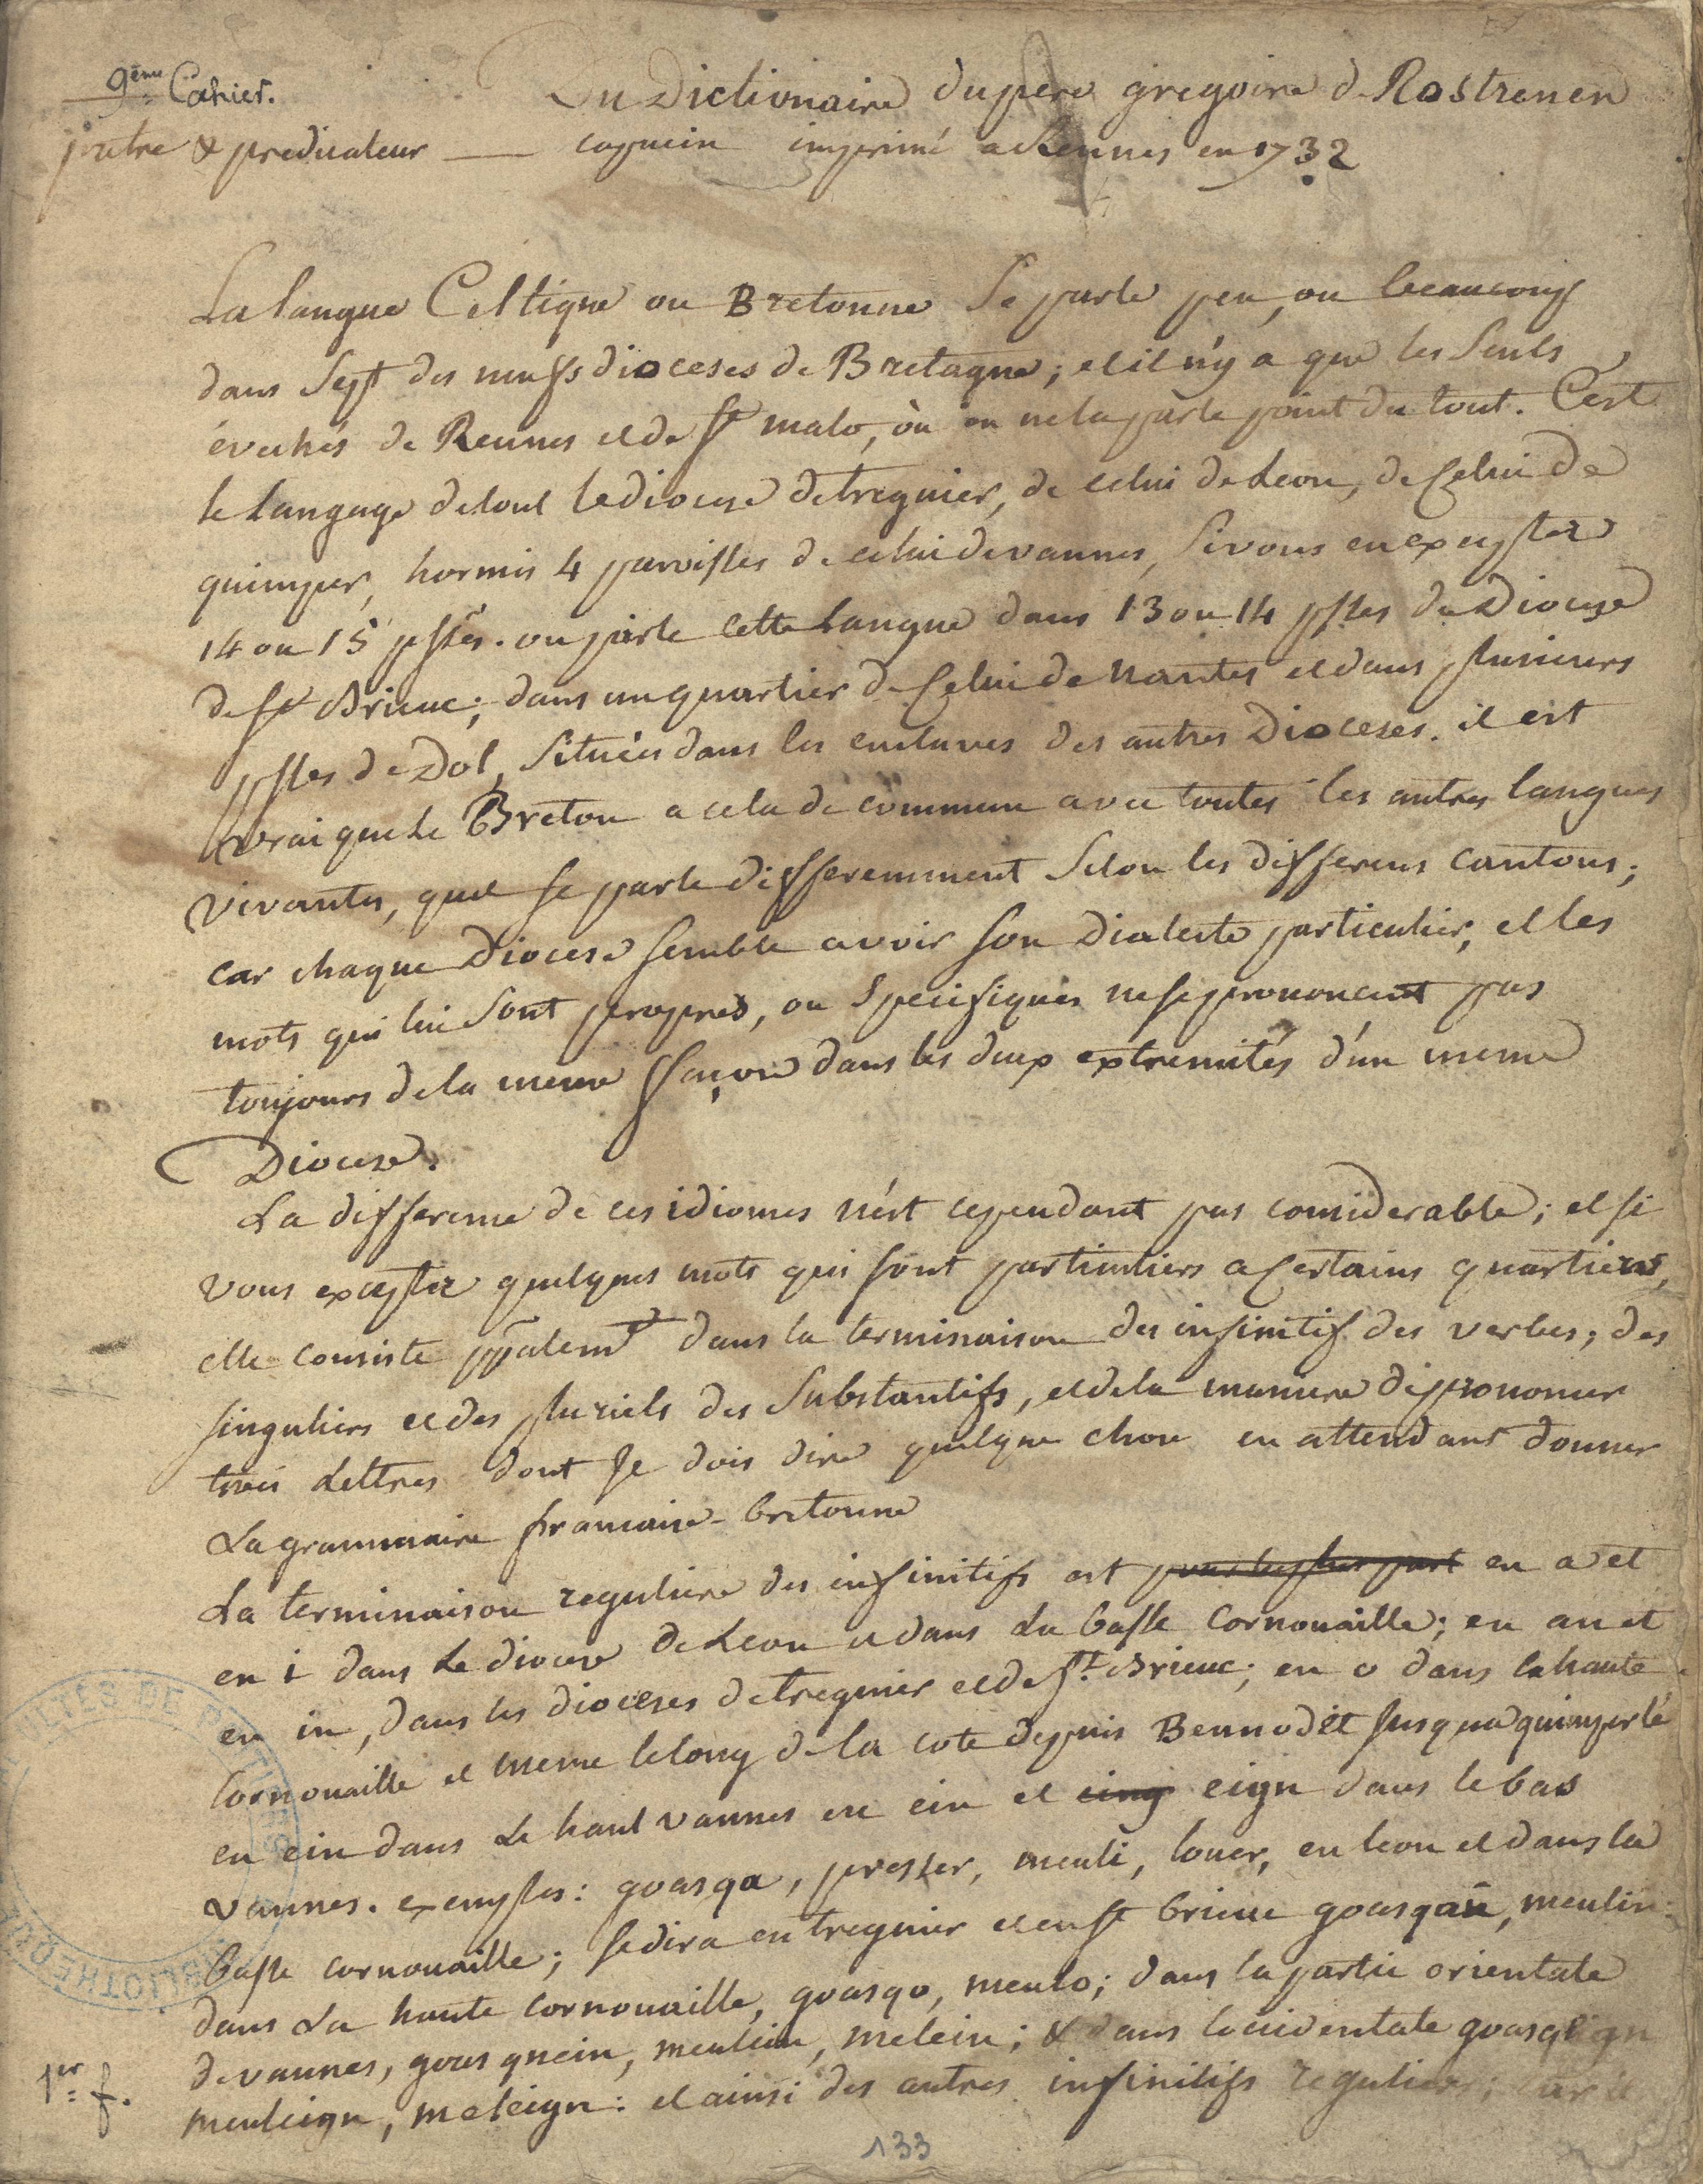 9ème Cahier.
Du Dictionaire du pere gregoire de Rostrenen
pretre & predicateur — capucin imprimé a Rennes en 1732
La langue Celtique ou Bretonne se parle peu, ou beaucoup
dans sept des neufs dioceses de Bretagne; et il n'y a que les seuls
évechés de Rennes et de st malo, où on ne la parle point du tout. C'est
le langage de tout le diocese de treguier, de celui de Leon, de celui de
quimper, hormis 4 paroisses de celui de vannes, si vous en exceptez
14 ou 15 psses. on parle cette Langue dans 13 ou 14 psses du Diocese
de st Brieuc; dans un quartier de celui de Nantes et dans plusieurs
psses de Dol, situées dans les enclaves des autres Dioceses. il est
vrai que le Breton a cela de commun avec toutes les autres langues
vivantes, quil se parle differemment selon les differens cantons;
car chaque Diocese semble avoir son Dialecte particulier, et les
mots qui lui sont propres, ou specifiques ne se prononcent pas
toujours de la meme façon dans les deux extremités d'un meme
Diocese.
La difference de ces idiomes n'est cependant pas considerable; et si
vous exceptez quelques mots qui sont particuliers a certains quartiers,
elle consiste ppalemt dans la terminaison des infinitifs des verbes; des
singuliers et des pluriels des substantifs, et de la maniere de prononcer
trois Lettres dont Je dois dire quelque chose en attendant donner
La grammaire francaise-bretonne
La terminaison reguliere des infinitifs est pour la plus part en a et
en i dans Le diocese de Leon et dans La basse Cornouaille; en an et
en in, dans les dioceses de treguier et de st. Brieuc; en o dans la haute
Cornouaille et meme le long de la cote depuis Bennodet Jusqu'a quimperlé
en ein dans Le haut vannes en ein et eing eign dans le bas
vannes. exemples: goasqa, presser, meuli, louer, en leon et dans la
basse cornouaille; se dira en treguier et en st brieuc goasqañ, meulin:
dans La haute Cornouaille, goasqo, meulo; dans la partie orientale
de vannes, gouasquein, meulein, melein; & dans l'occidentale goasqeign
meuleign, meleign: et ainsi des autres infinitifs reguliers; car il
1er f.
133